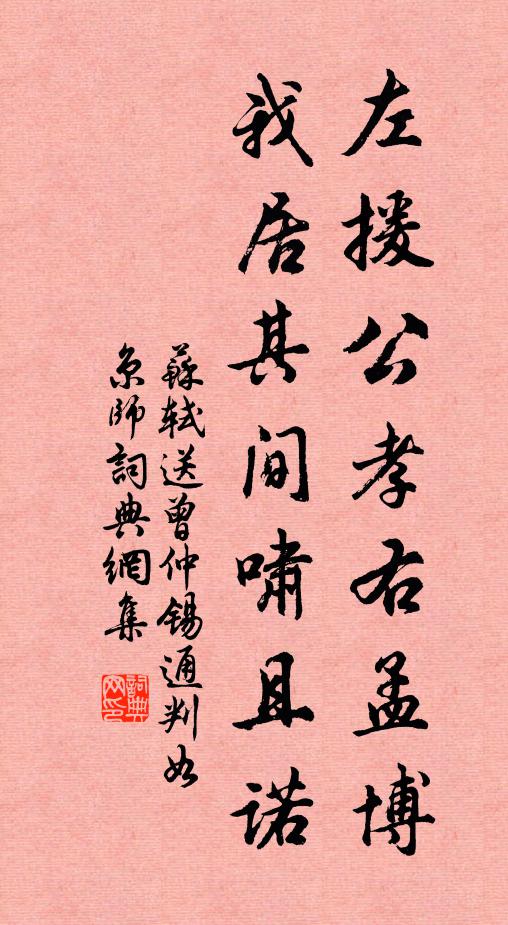 左援公孝右孟博
我居其間嘯且諾
蘇軾送曾仲錫通判如
京師詞典網集
詞典
网印